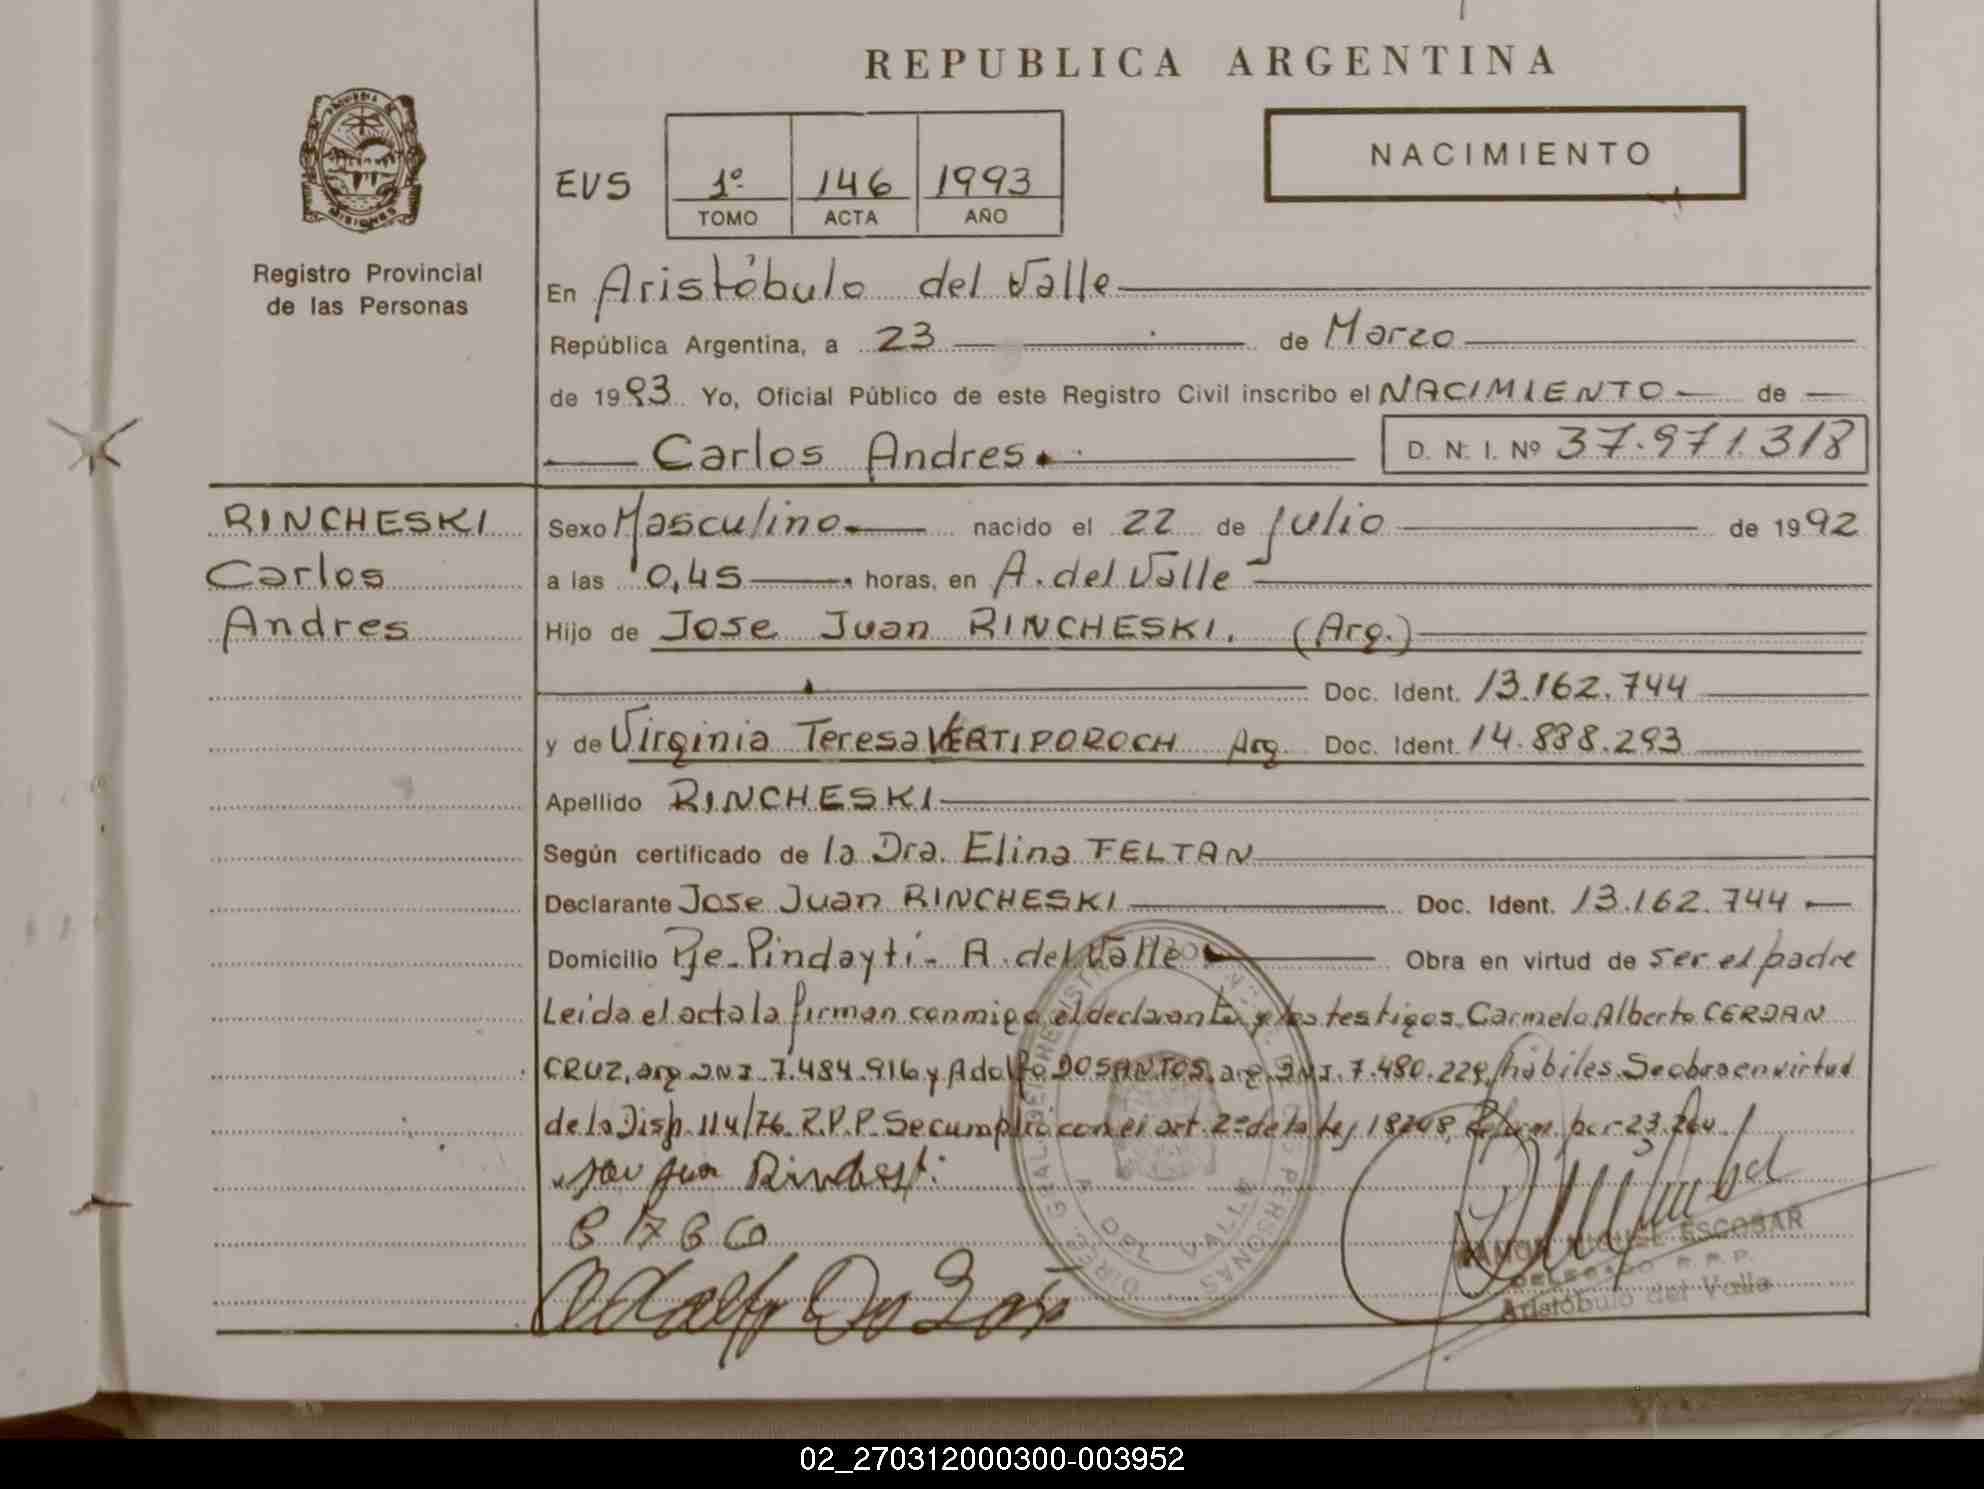 REPUBLICA ARGENTINA
NACIMIENTO
EVS 1º 146 1993
TOMO ACTA AÑO
MISIONES
Registro Provincial
de las Personas
En Aristóbulo del Valle
República Argentina, a 23 de Marzo
de 1993 Yo, Oficial Público de este Registro Civil inscribo el NACIMIENTO de
Carlos Andres D. N. I. Nº 37.971.318
RINCHESKI
Carlos
Andres
Sexo Masculino nacido el 22 de julio de 1992
a las 0,45 horas, en A. del Valle
Hijo de Jose Juan RINCHESKI. (Arg.)
Doc. Ident. 13.162.744
y de Virginia Teresa VERTIPOROCH Arg. Doc. Ident. 14.888.293
Apellido RINCHESKI
Según certificado de la Dra. Elina FELTAN
Declarante Jose Juan RINCHESKI Doc. Ident. 13.162.744
Domicilio Pje. Pindaytí - A. del Valle Obra en virtud de ser el padre
Leida el acta la firman conmigo el declarante y los testigos Carmelo Alberto CERDAN
CRUZ, arg. DNI. 7.484.916 y Adolfo DOSANTOS, arg. DNI. 7.480.229, hábiles. Se obra en virtud
de la Disp. 114/76 R.P.P. Se cumplió con el art. 2º de la ley 18248, Reform. por 23.264.
Adolfo Do Santos
A DEL VALLE
RAMON MIGUEL ESCOBAR
DELEGADO R.P.P.
Aristóbulo del Valle
02_270312000300-003952